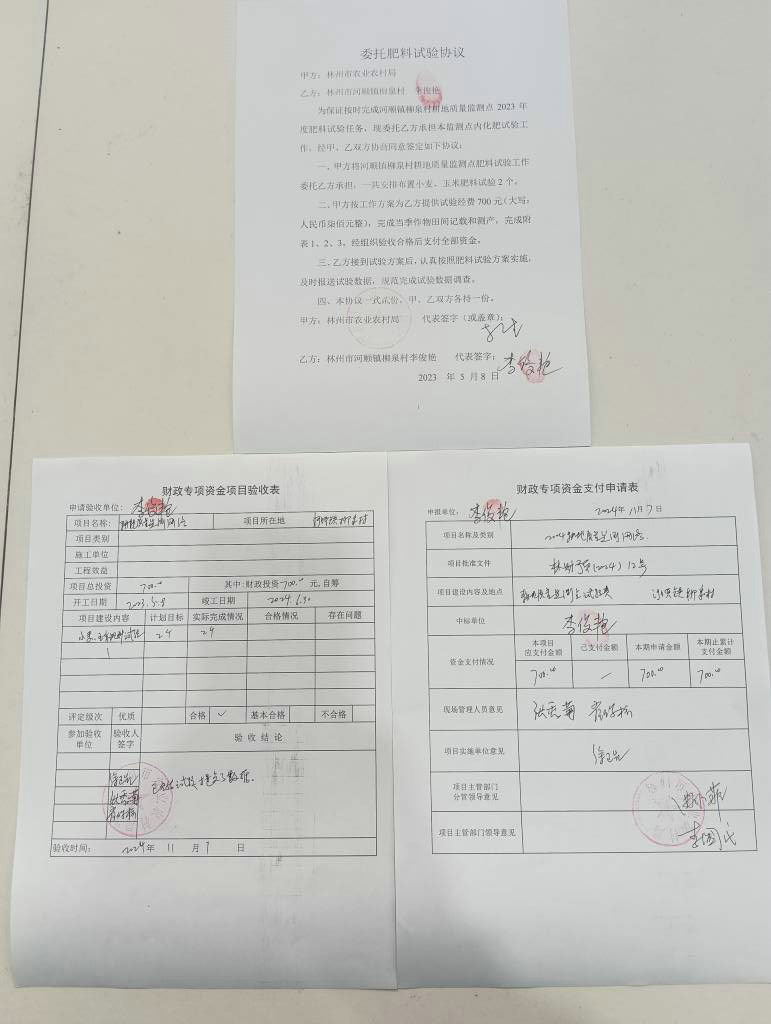 委托肥料试验协议
甲方：林州市农业农村局
乙方：林州市河顺镇柳泉村 李俊艳
为保证按时完成河顺镇柳泉村耕地质量监测点 2023 年
度肥料试验任务，现委托乙方承担本监测点内化肥试验工
作，经甲、乙双方协商同意签定如下协议：
一、甲方将河顺镇柳泉村耕地质量监测点肥料试验工作
委托乙方承担，一共安排布置小麦、玉米肥料试验 2 个。
二、甲方按工作方案为乙方提供试验经费 700 元（大写：
人民币柒佰元整），完成当季作物田间记载和测产，完成附
表 1、2、3，经组织验收合格后支付全部资金。
三、乙方接到试验方案后，认真按照肥料试验方案实施，
及时报送试验数据，规范完成试验数据调查。
四、本协议一式贰份，甲、乙双方各持一份。
甲方：林州市农业农村局 代表签字（或盖章）：
乙方：林州市河顺镇柳泉村李俊艳 代表签字：李俊艳
2023 年 5 月 8 日
1
财政专项资金项目验收表
申请验收单位：李俊艳
项目名称： 耕地质量监测网络 项目所在地 河顺镇柳泉村
项目类别
施工单位
工程效益
项目总投资 700.00 其中：财政投资 700.00 元，自筹
开工日期 2023.5.8 竣工日期 2024.6.30
项目建设内容 计划目标 实际完成情况 合格情况 存在问题
小麦、玉米肥料试验 2个 2个
评定级次 优质 合格 ✓ 基本合格 不合格
参加验收单位 验收人签字 验 收 结 论
已完成试验，提交了数据。
验收时间： 2024 年 11 月 7 日
财政专项资金支付申请表
申报单位：李俊艳 2024年11月7日
项目名称及类别 2024耕地质量监测网络
项目批准文件 林财预（2024）12号
项目建设内容及地点 耕地质量监测点试验费 河顺镇柳泉村
中标单位 李俊艳
资金支付情况 本项目应支付金额 已支付金额 本期申请金额 本期止累计支付金额
700.00 — 700.00 700.00
现场管理人员意见
项目实施单位意见
项目主管部门分管领导意见
项目主管部门领导意见